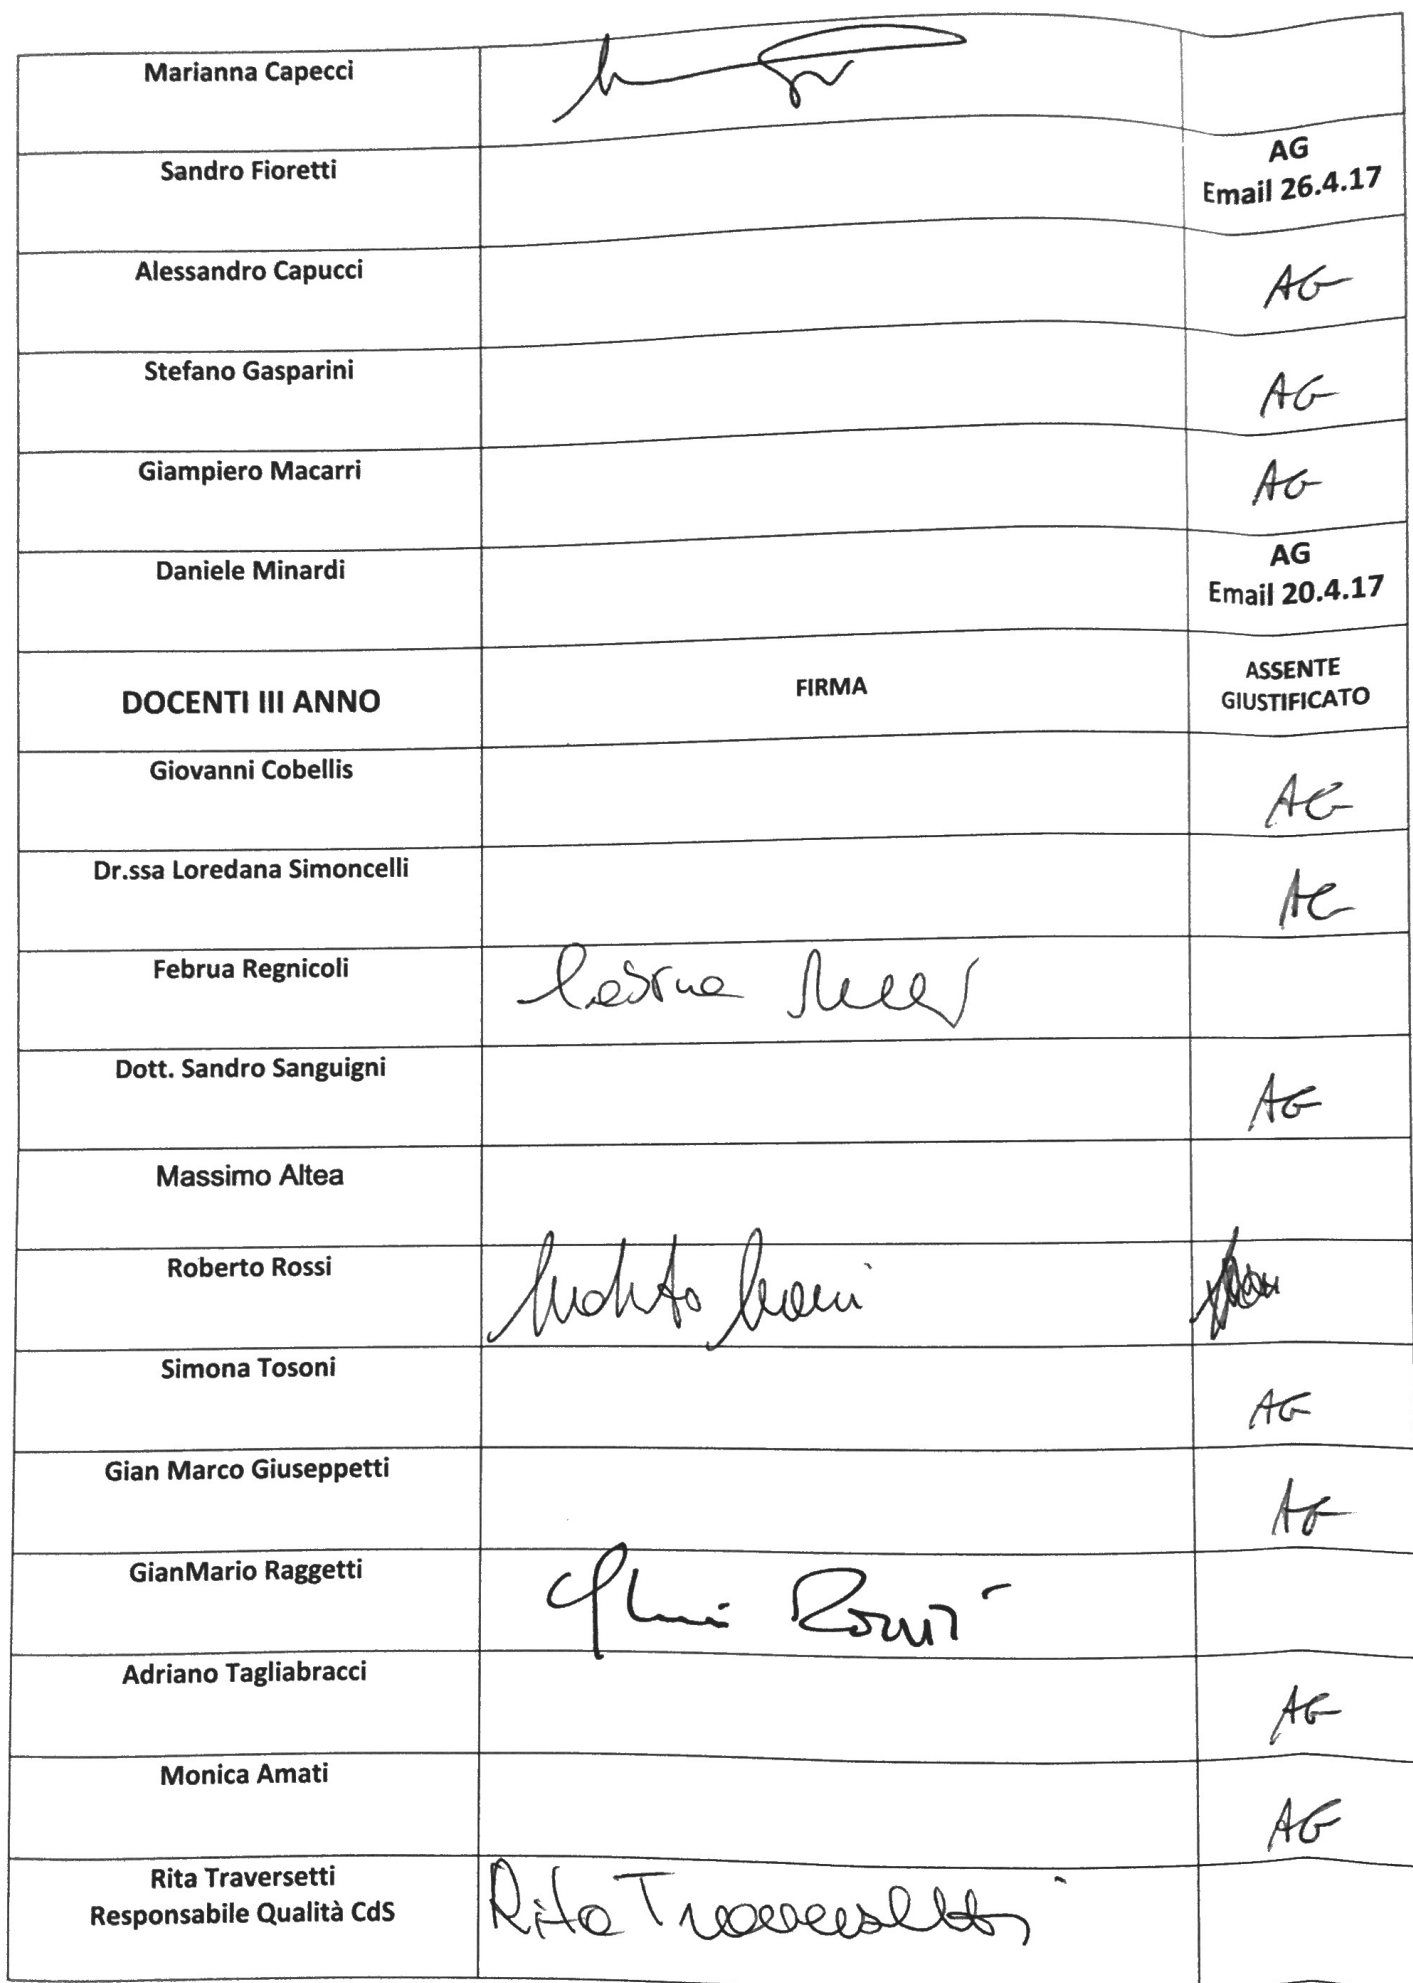 Marianna Capecci
Sandro Fioretti
AG
Email 26.4.17
Alessandro Capucci
AG
Stefano Gasparini
AG
Giampiero Macarri
AG
Daniele Minardi
AG
Email 20.4.17
DOCENTI III ANNO
FIRMA
ASSENTE
GIUSTIFICATO
Giovanni Cobellis
AG
Dr.ssa Loredana Simoncelli
AG
Februa Regnicoli
Dott. Sandro Sanguigni
AG
Massimo Altea
Roberto Rossi
Simona Tosoni
AG
Gian Marco Giuseppetti
AG
GianMario Raggetti
Adriano Tagliabracci
AG
Monica Amati
AG
Rita Traversetti
Responsabile Qualità CdS
Rita Traversetti